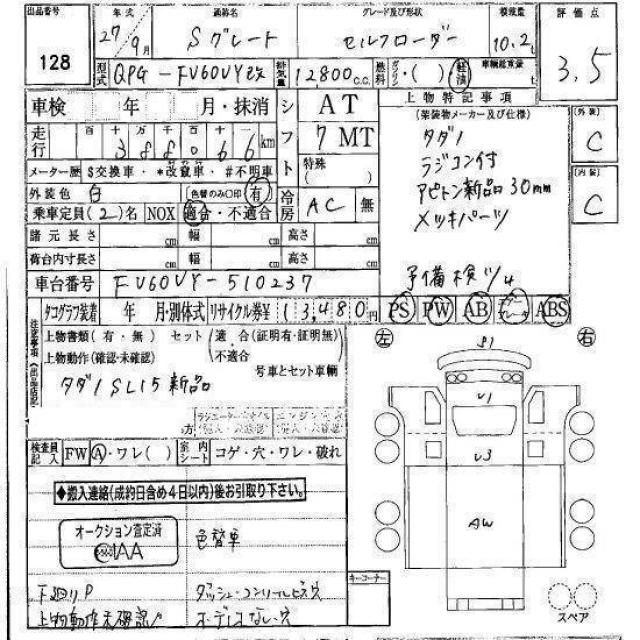 出品番号 128
年式 27年 9月
通称名 Sグレード
グレード及び形状 セルフローダー
積載量 10.2t
評価点 3.5
型式 QPG-FV60VY改
排気量 12800c.c.
燃料 ガソリン・( ) 軽油
車輌総重量 t
車検 年 月・抹消
シフト AT
7 MT
特殊 ( )
上物特記事項
(架装物メーカー及び仕様)
タダノ
ラジコン付
アピトン新品30mm
メッキパーツ
予備検ツキ
(外装) C
(内装) C
走行 百 十 万 千 百 十 一
388066km
メーター歴 $交換車・*改竄車・#不明車
外装色 白 (色替のみ〇印) 有
冷房 AC 無
乗車定員(2)名 NOX 適合・不適合
諸元長さ cm 幅 cm 高さ cm
荷台内寸長さ cm 幅 cm 高さ cm
車台番号 FV60VY-510237
タコグラフ装着 年 月・別体式 リサイクル券¥ 13,480円 PS PW AB ABS
注意事項(出品店記入)
上物書類(有・無) セット 適合(証明有・証明無) 不適合
上物動作(確認・未確認) 号車とセット車輌
タダノ SL15 新品
検査員記入 FW A・ワレ( ) 室内シート コゲ・穴・ワレ・破れ
◆搬入連絡(成約日含め4日以内)後お引取り下さい。
オークション査定済
IAA
色替車
下廻りP ダッシュ・コンソールビスウ
上物動作未確認
左 右
S1
U1
U3
AW
キーコーナー
スペア